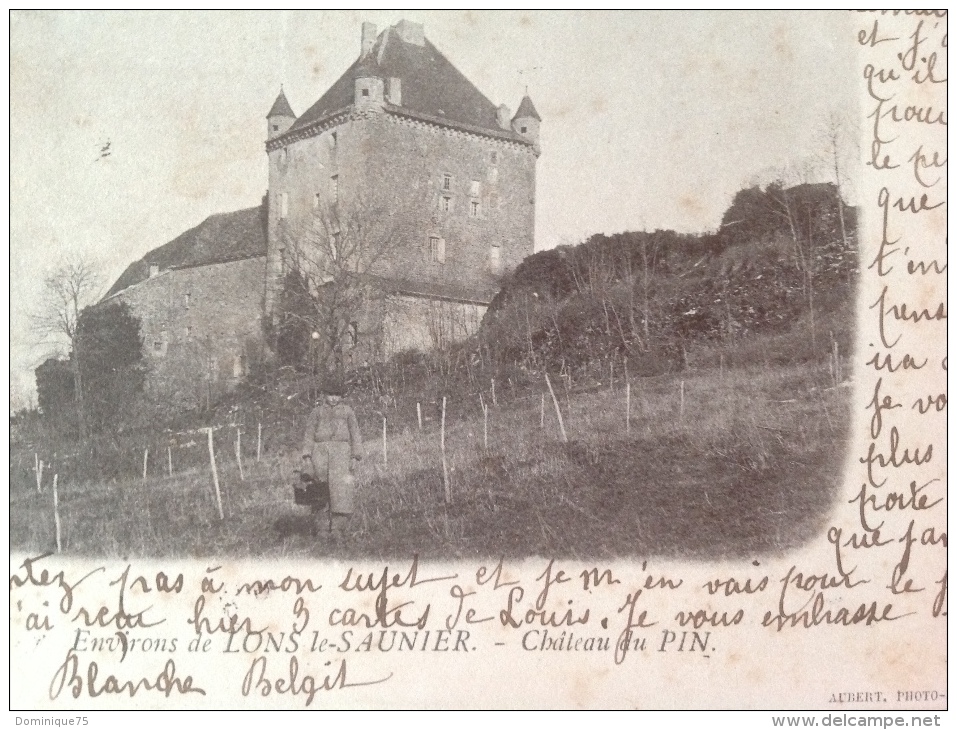 et j'
qu'il
pour
le pe
que
t'en
pens
ira
je vo
plus
porte
que jam
tez pas à mon sujet et je m'en vais pour le p
'ai reçu hier 3 cartes de Louis. Je vous embrasse
Environs de LONS le-SAUNIER. - Château du PIN.
Blanche Belgit
AUBERT, PHOTO-
Dominique75
www.delcampe.net